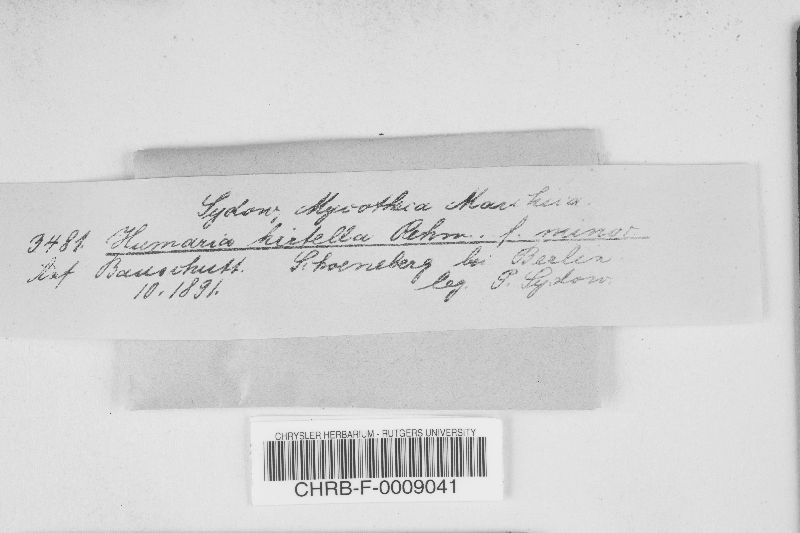 Sydow, Mycotheca Marchica.
3481. Humaria hirtella Rehm. f. minor
Auf Bauschutt. Schoeneberg bei Berlin.
10.1891. leg. P. Sydow.
CHRYSLER HERBARIUM - RUTGERS UNIVERSITY
CHRB-F-0009041